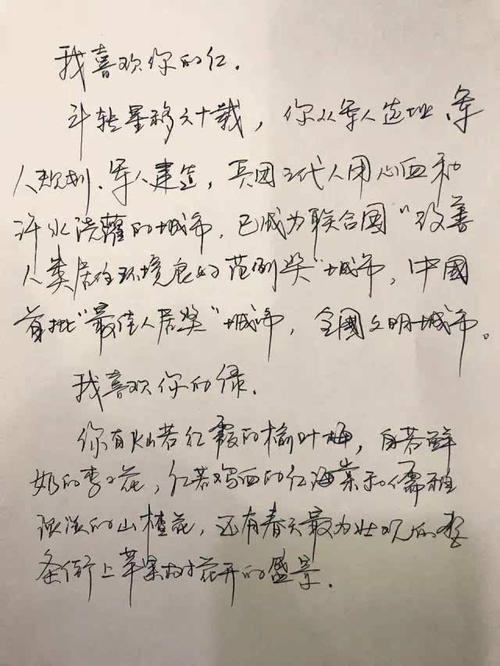 我喜欢你的红.
斗转星移六十载，你从军人选址.军
人规划.军人建造，兵团三代人用心血和
汗水浇灌的城市，已成为联合国“改善
人类居住环境良好范例奖”城市，中國
首批“最佳人居奖”城市，全國文明城市。
我喜欢你的绿.
你有灿若红霞的榆叶梅，白若鲜
奶的李子花，红若鸡血的红海棠和儒雅
淡淡的山楂花，还有春天最为壮观的整
条街上苹果树花开的盛景.